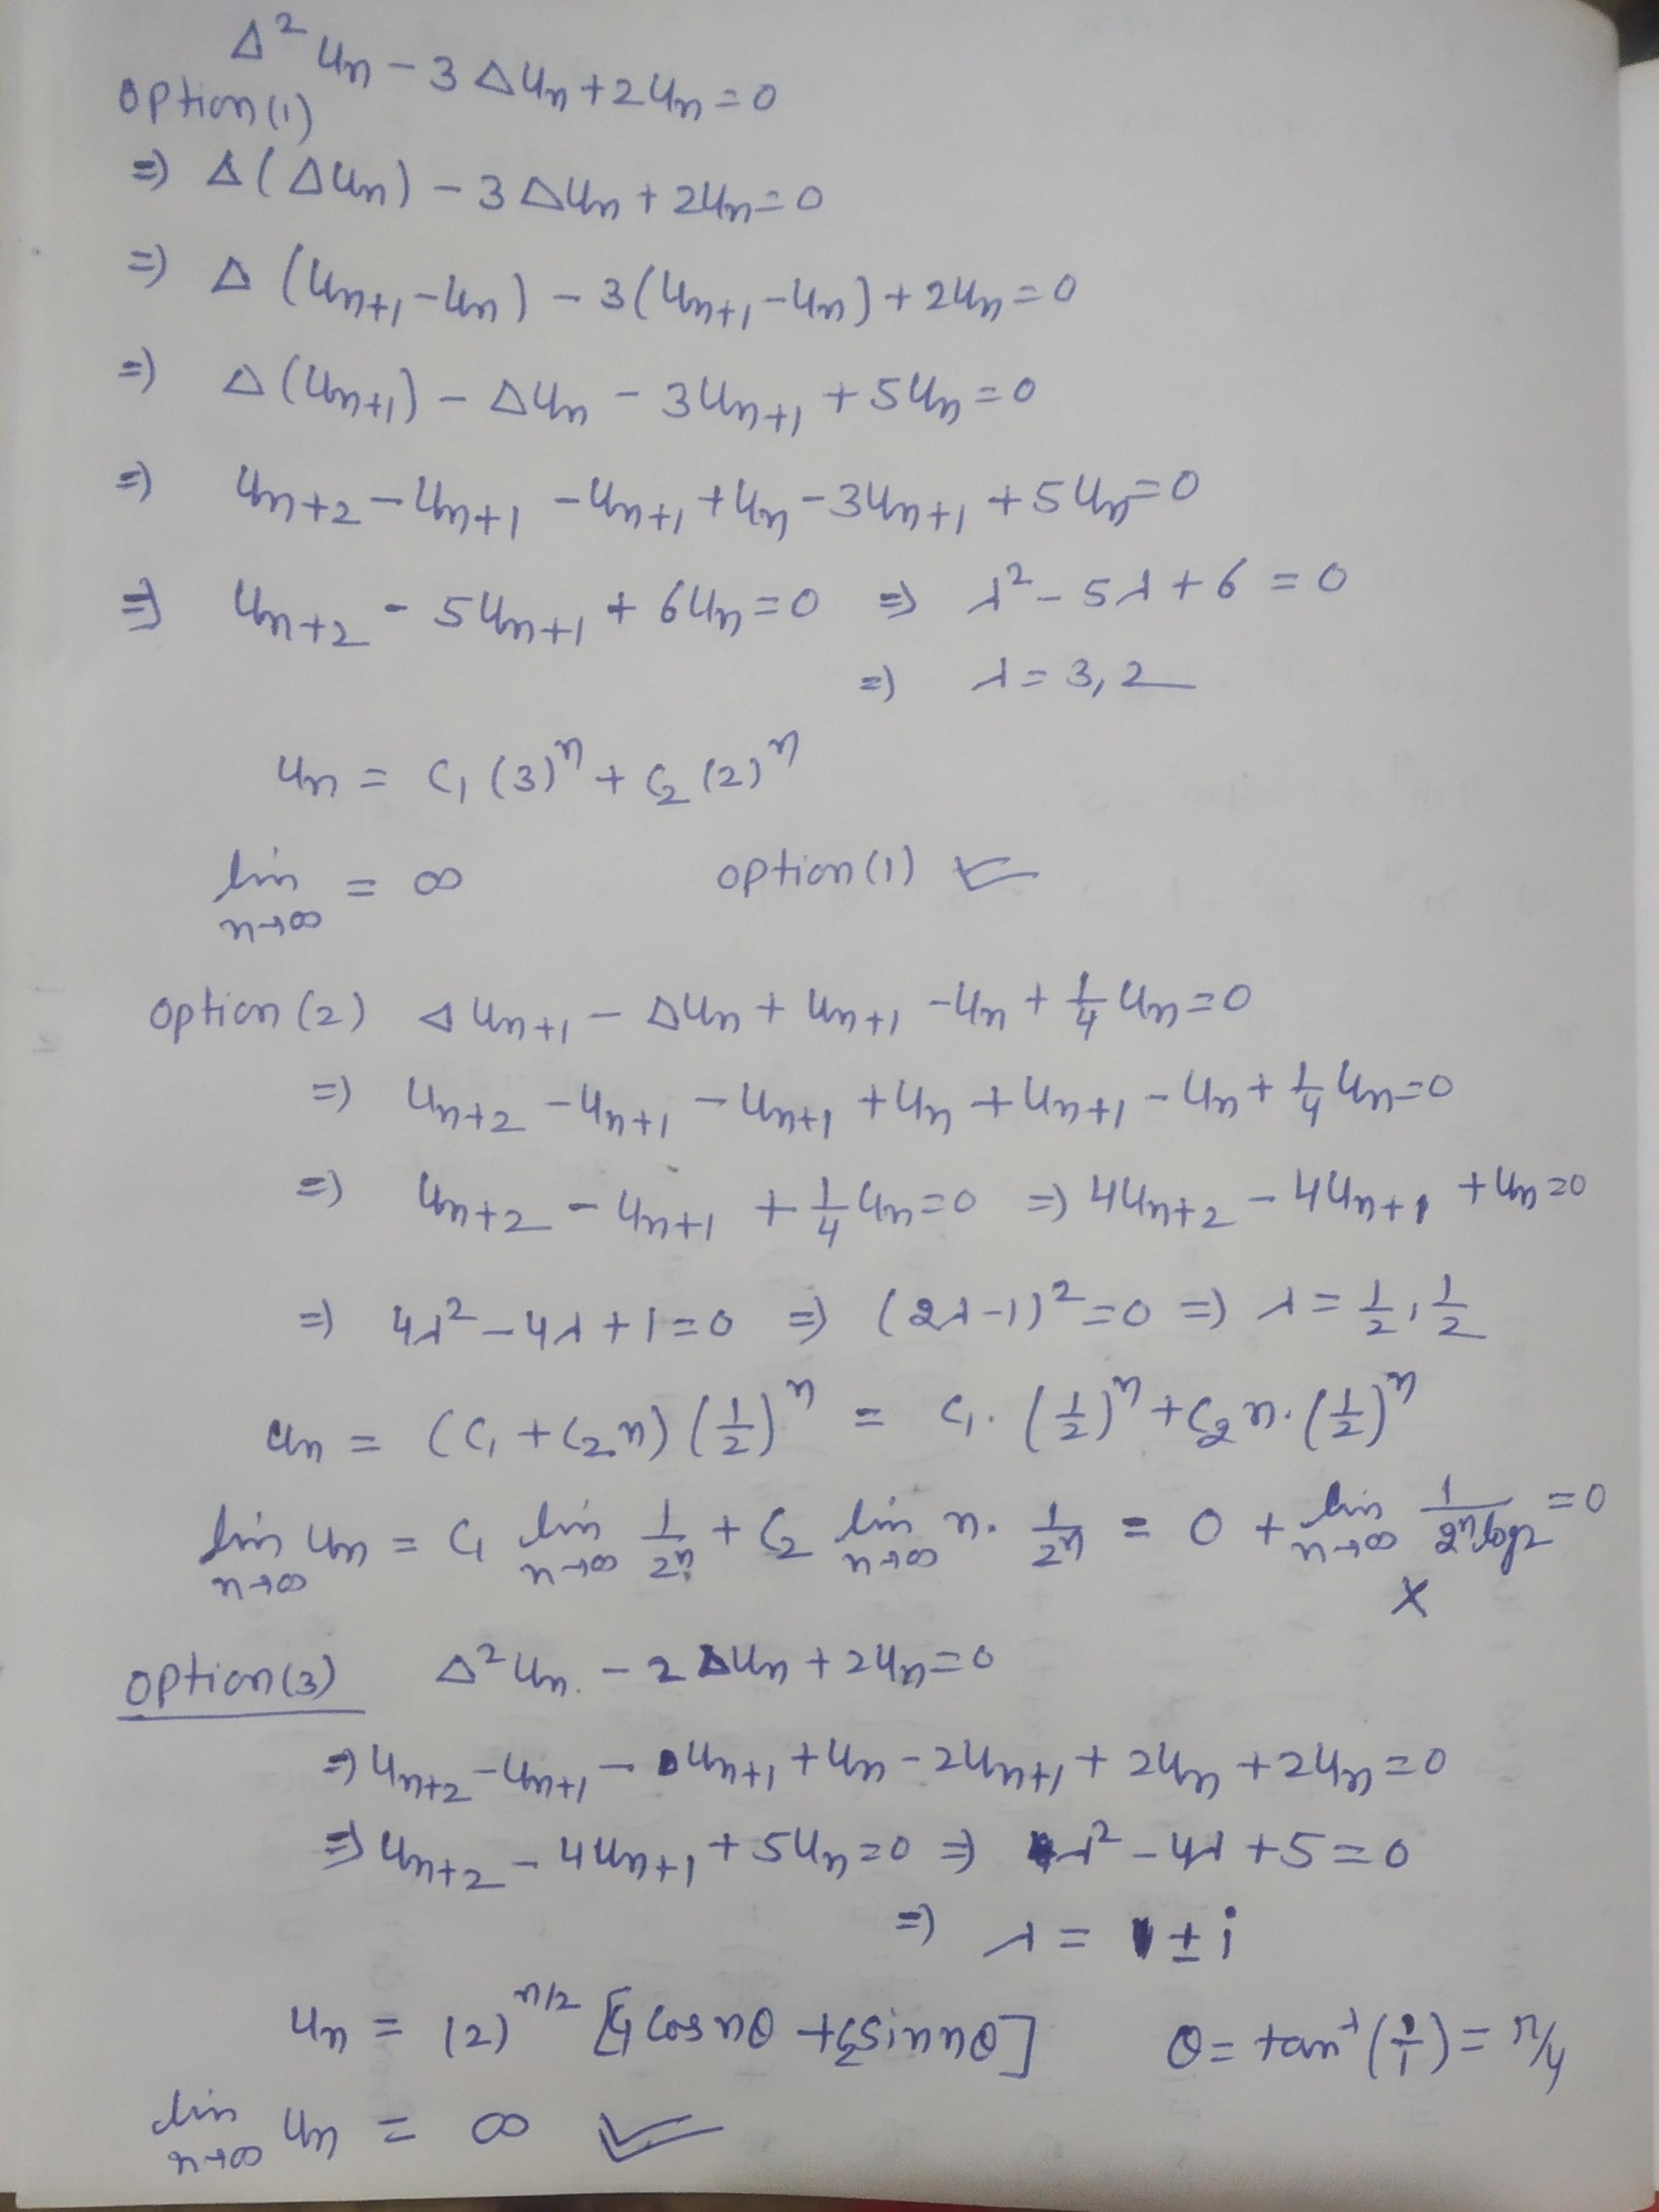 Δ²uₙ - 3Δuₙ + 2uₙ = 0
option(1)
⇒ Δ(Δuₙ) - 3Δuₙ + 2uₙ = 0
⇒ Δ(uₙ₊₁ - uₙ) - 3(uₙ₊₁ - uₙ) + 2uₙ = 0
⇒ Δ(uₙ₊₁) - Δuₙ - 3uₙ₊₁ + 5uₙ = 0
⇒ uₙ₊₂ - uₙ₊₁ - uₙ₊₁ + uₙ - 3uₙ₊₁ + 5uₙ = 0
⇒ uₙ₊₂ - 5uₙ₊₁ + 6uₙ = 0 ⇒ λ² - 5λ + 6 = 0
⇒ λ = 3, 2
uₙ = c₁(3)ⁿ + c₂(2)ⁿ
lim n→∞ = ∞ option(1) ✓
option(2) Δuₙ₊₁ - Δuₙ + uₙ₊₁ - uₙ + 1/4 uₙ = 0
⇒ uₙ₊₂ - uₙ₊₁ - uₙ₊₁ + uₙ + uₙ₊₁ - uₙ + 1/4 uₙ = 0
⇒ uₙ₊₂ - uₙ₊₁ + 1/4 uₙ = 0 ⇒ 4uₙ₊₂ - 4uₙ₊₁ + uₙ = 0
⇒ 4λ² - 4λ + 1 = 0 ⇒ (2λ - 1)² = 0 ⇒ λ = 1/2, 1/2
uₙ = (c₁ + c₂n)(1/2)ⁿ = c₁·(1/2)ⁿ + c₂n·(1/2)ⁿ
lim n→∞ uₙ = c₁ lim n→∞ 1/2ⁿ + c₂ lim n→∞ n·1/2ⁿ = 0 + lim n→∞ 1/(2ⁿ log2) = 0
×
option(3) Δ²uₙ. - 2Δuₙ + 2uₙ = 0
⇒ uₙ₊₂ - uₙ₊₁ - uₙ₊₁ + uₙ - 2uₙ₊₁ + 2uₙ + 2uₙ = 0
⇒ uₙ₊₂ - 4uₙ₊₁ + 5uₙ = 0 ⇒ λ² - 4λ + 5 = 0
⇒ λ = ± i
uₙ = (2)^(n/2) [c₁cosnθ + c₂sinnθ] θ = tan⁻¹(1/1) = π/4
lim n→∞ uₙ = ∞ ✓